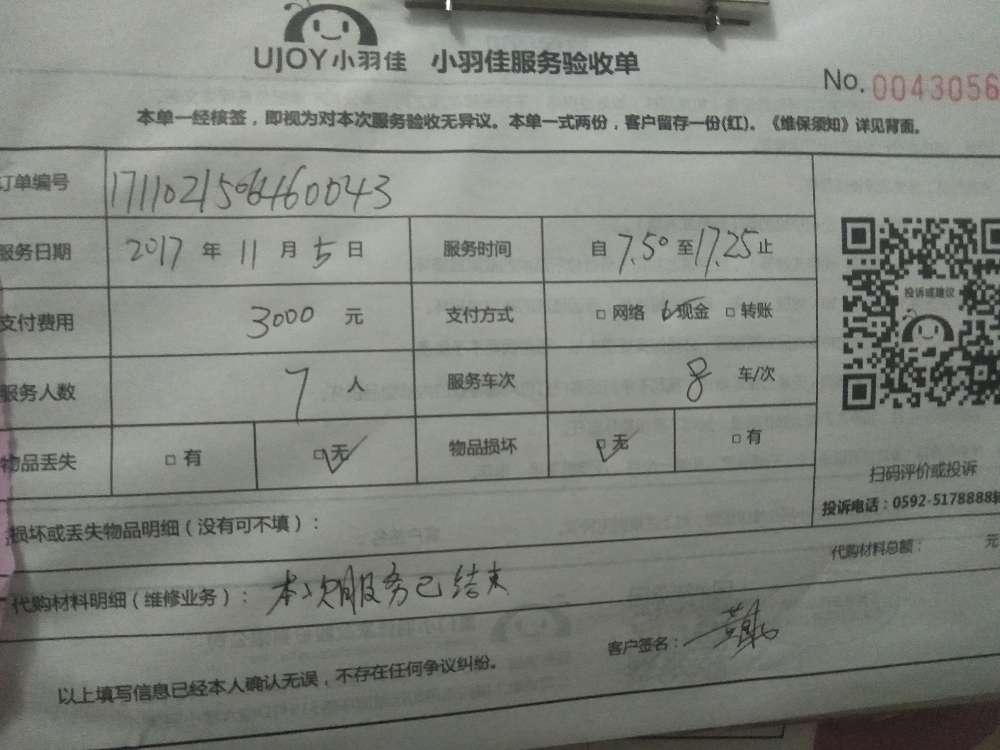 UJOY小羽佳 小羽佳服务验收单
No. 0043056
本单一经核签，即视为对本次服务验收无异议。本单一式两份，客户留存一份(红)。《维保须知》详见背面。
订单编号 17110215064460043
服务日期 2017 年 11 月 5 日 服务时间 自 7.50 至 17.25 止
支付费用 3000 元 支付方式 □ 网络 □ 现金 □ 转账
服务人数 7 人 服务车次 8 车/次
物品丢失 □ 有 □ 无 物品损坏 □ 无 □ 有
投诉或建议
扫码评价或投诉
投诉电话：0592-5178888转
损坏或丢失物品明细（没有可不填）：
代购材料明细（维修业务）： 本次服务已结束
代购材料总额： 元
客户签名：
以上填写信息已经本人确认无误，不存在任何争议纠纷。